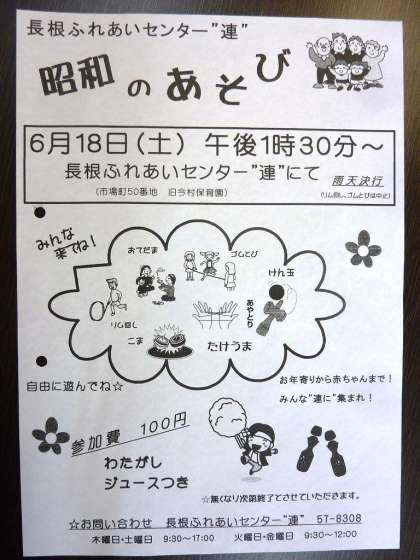 長根ふれあいセンター"連"
昭和のあそび
6月18日(土) 午後1時30分～
長根ふれあいセンター"連"にて
(市場町50番地 旧今村保育園)
雨天決行
(リム回し、ゴムとびは中止)
みんな
来てね!
おてだま
ゴムとび
けん玉
リム回し
あやとり
こま
たけうま
自由に遊んでね☆
お年寄りから赤ちゃんまで!
みんな"連"に集まれ!
参加費 100円
わたがし
ジュースつき
☆無くなり次第終了とさせていただきます。
☆お問い合わせ 長根ふれあいセンター"連" 57-8308
木曜日・土曜日 9:30～17:00 火曜日・金曜日 9:30～12:00